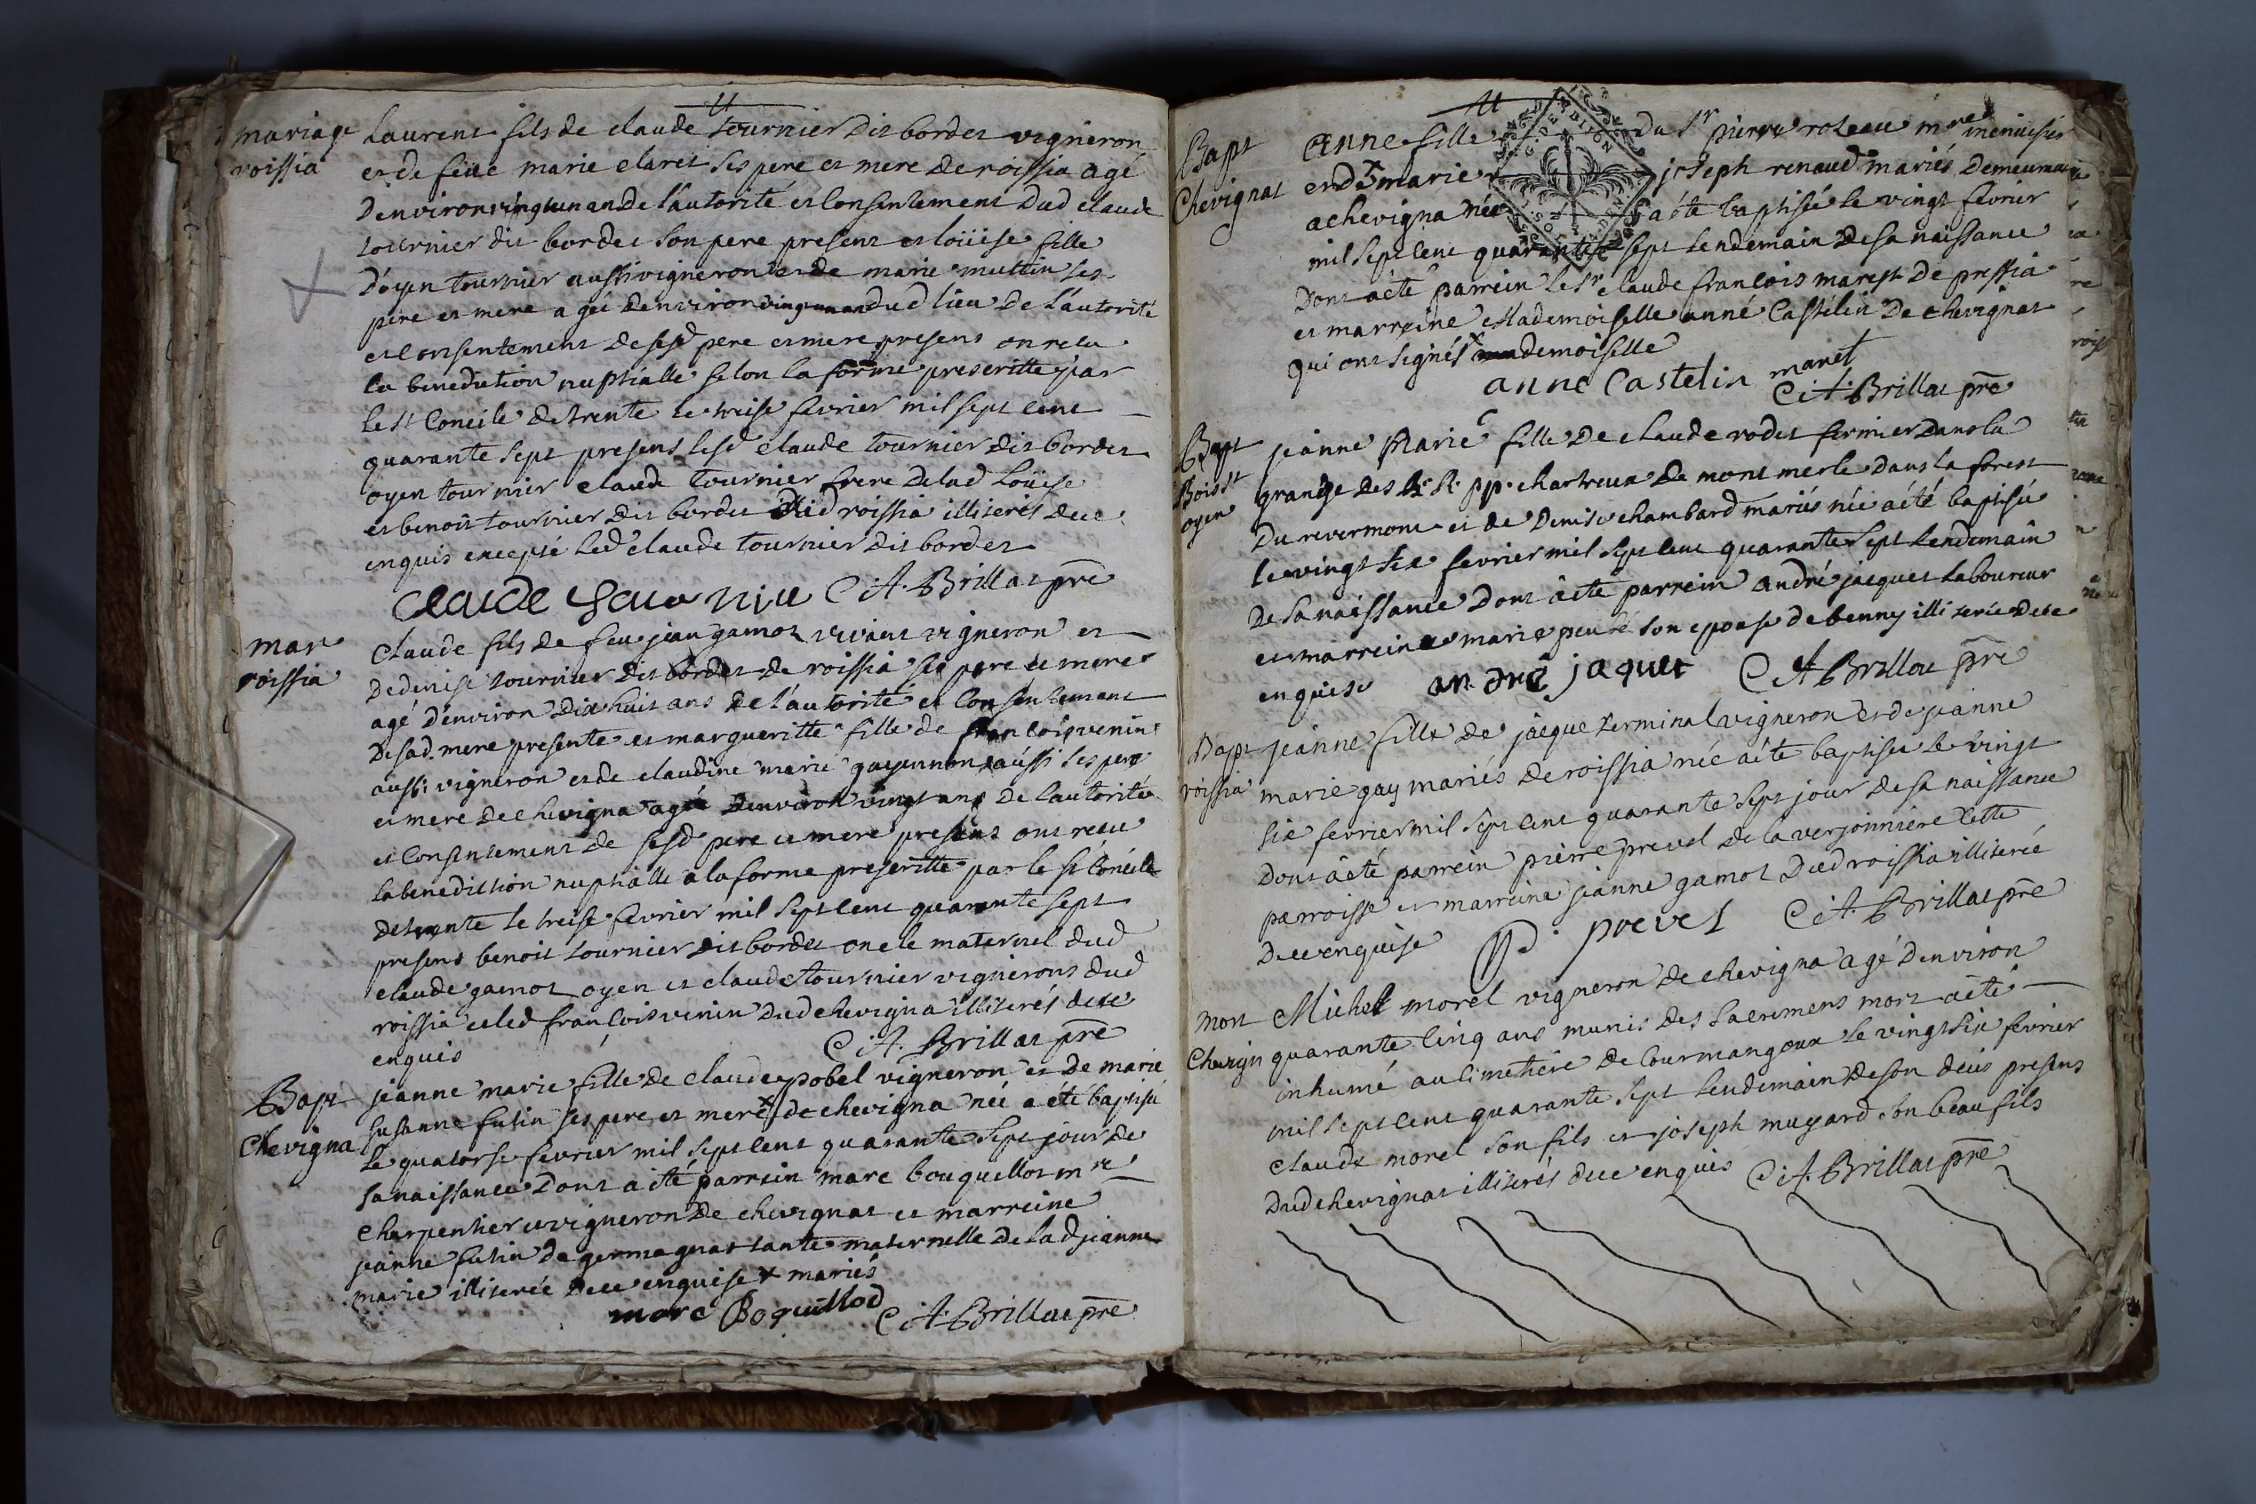 mariage
roissia
Laurent fils de claude tournier dit bordet vigneron
et de feüe marie claret ses pere et mere de roissia agé
d'environ vingt un an de l'autorité et consentement dud claude
tournier dit bordet son pere present et loüise fille
d'oyen tournier aussi vigneron et de marie muttin ses
pere et mere agée denviron vingt un an dud lieu de l'autorité
et consentement de sesd pere et mere presens on recu
la benediction nuptialle selon la forme prescritte par
le st Concile de trente le treise fevrier mil sept cent
quarante sept presens lesd claude tournier dit bordet
oyen tournier claude tournier frere de lad Loüise
et benoit tournier dit bordet dud roissia illiterés de ce
enquis excepté led claude tournier dit bordet
C A Brillat pre
mar
roissia
Claude fils de feu jean gamot vivant vigneron et
de denise tournier dit bordet de roissia ses pere et mere
agé d'environ dix huit ans de l'autorité et consentement
de sad mere presente et margueritte fille de francois venin
aussi vigneron et de claudine marie aussi ses pere
et mere de chevigna agée denviron vingt ans de lautorité
et consentement de sesd pere et mere presens ont recu
la benediction nuptialle a la forme prescritte par le st Concile
de trente le treise fevrier mil sept cent quarante sept
presens benoit tournier dit bordet oncle maternel dud
claude gamot oyen et claude tournier vignerons dud
roissia et led francois venin dud chevigna illiterés de ce
enquis
C A Brillat pre
Bapt
Chevigna
jeanne marie fille de claude pobel vigneron et de marie
susanne futin ses pere et mere x de chevigna née a été baptisée
le quatorse fevrier mil sept cent quarante sept jour de
sa naissance dont a été parrein marc bouquillot mre
charpentier et vigneron de chevignat et marreine
jeanne futin de germagnat tante maternelle de lad jeanne
marie illiterée de ce enquise x mariés
marc Boquillod
C A Brillat pre
Bapt
Chevignat
Anne fille du sr pierre roteau mre menuisier
et d marie joseph renaud mariés demeurant
a chevigna née a été baptisée le vingt fevrier
mil sept cent quarante sept lendemain de sa naissance
dont a été parrein le sr claude francois marest de pressia
et marreine Mademoiselle anne Castelin de chevignat
qui ont signés x demoiselle
anne Castelin maret
C A Brillat pre
Bapt
Boisst
oyen
jeanne Marie fille de claude rodet fermier dans la
grange des RR pp chartreux de mont merle dans la forest
du revermont et de Denise chambard mariés née a été baptisée
le vingt six fevrier mil sept cent quarante sept lendemain
de sa naissance dont a été parrein andré jacquet laboureur
et marreine marie son epouse de benny illiterée de ce
enquise
andre jaquet C A Brillat pre
Bapt
roissia
jeanne fille de jacque terminal vigneron et de jeanne
marie gay mariés de roissia née a été baptisée le vingt
six fevrier mil sept cent quarante sept jour de sa naissance
dont a été parrein pierre prevel de la verjonniere cette
parroisse et marreine jeanne gamot dud roissia illiterée
de ce enquise
p prevel C A Brillat pre
Mort
Chevign
Michel morel vigneron de chevigna agé denviron
quarante cinq ans munis des sacremens mort a été
inhumé au cimetiere de Courmangoux le vingt six fevrier
mil sept cent quarante sept lendemain de son deces presens
claude morel son fils et joseph mugard son beau fils
dud chevignat illiterés de ce enquis C A Brillat pre